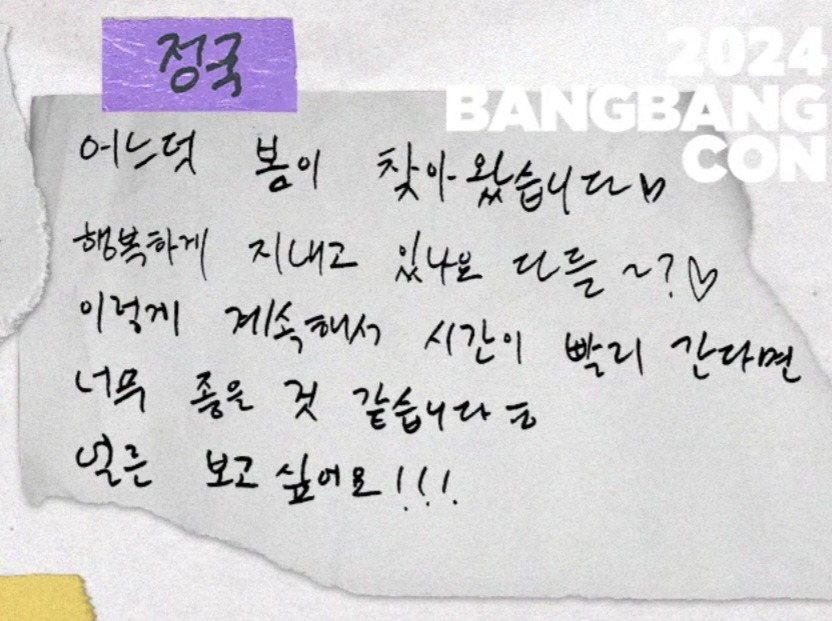 정국
2024
BANGBANG
CON
어느덧 봄이 찾아왔습니다♡
행복하게 지내고 있나요 다들 ~?♡
이렇게 계속해서 시간이 빨리 간다면
너무 좋을 것 같습니다 ㅎ
얼른 보고싶어요!!!